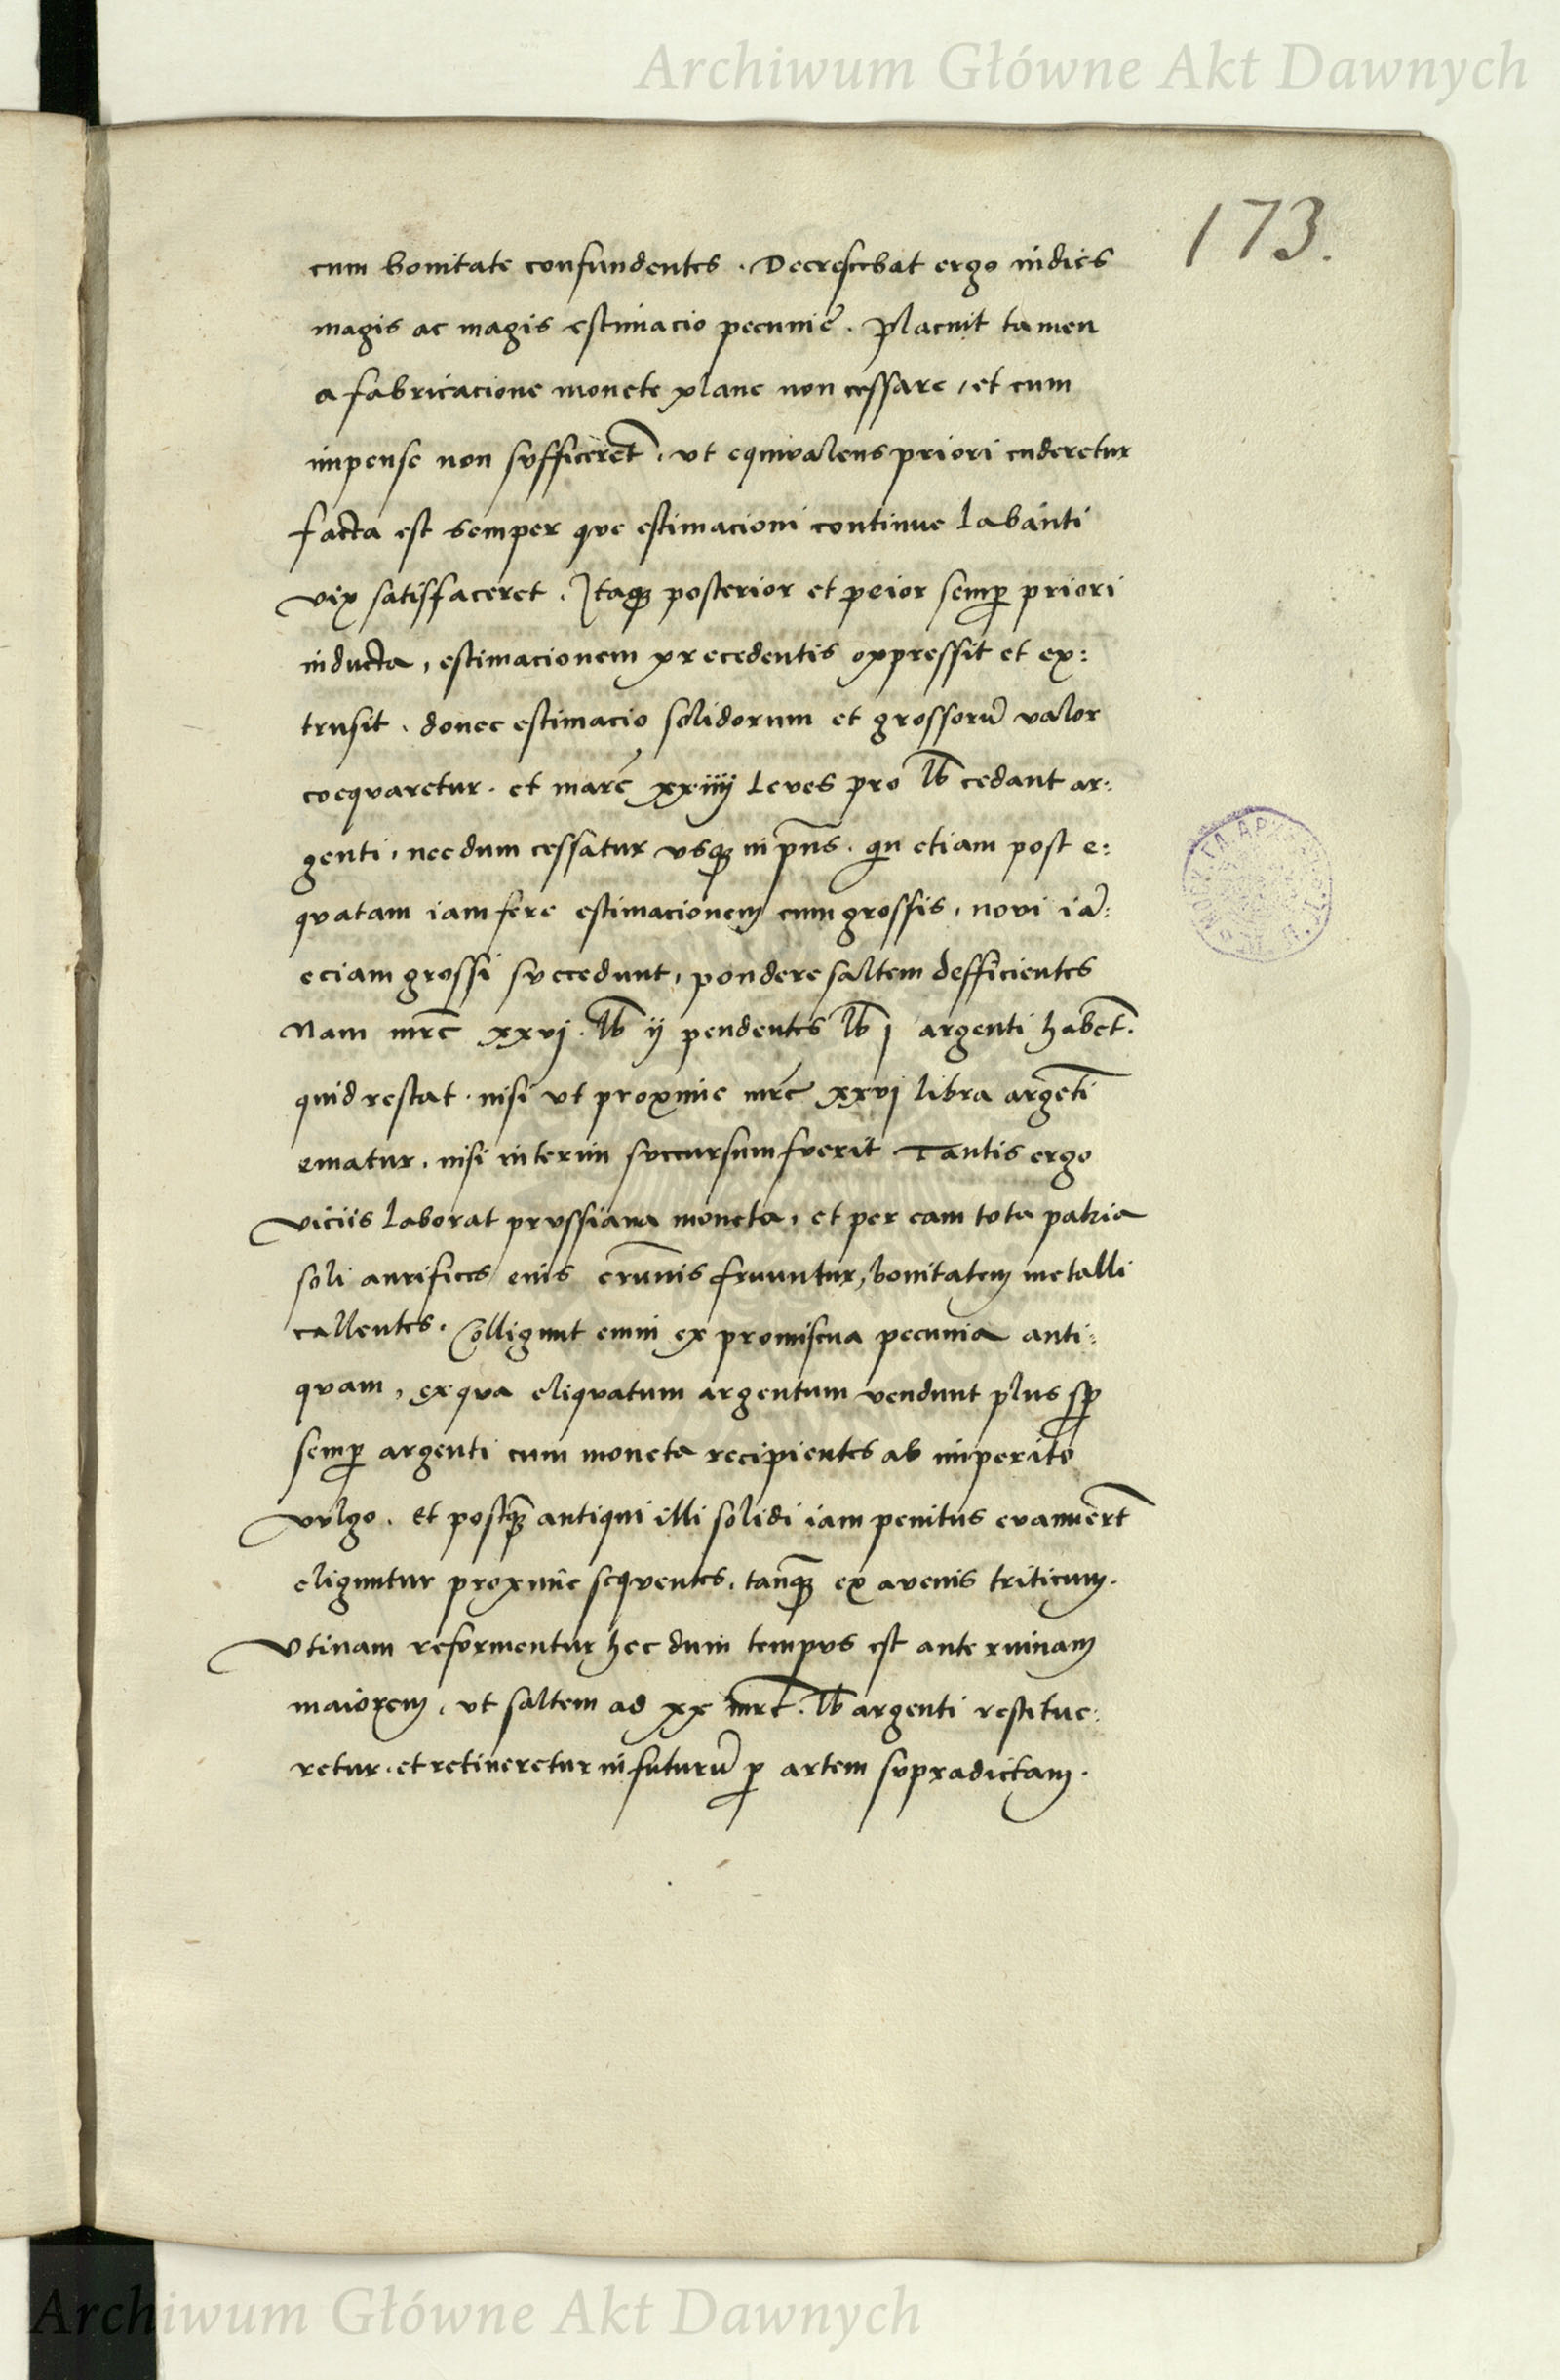 Archiwum Główne Akt Dawnych
173.
cum bonitate confundentes . Decrescebat ergo indies
magis ac magis estimacio pecunie . Placuit tamen
a fabricacione monete plane non cessare , et cum
impense non svfficerēt , vt equivalens priori cuderetur
facta est semper que estimacioni continue labanti
vix satisfaceret . Itaqꝫ posterior et peior semꝑ priori
inducta , estimacionem precedentis oppressit et ex:
trusit . donec estimacio solidorum et grossorū valor
coequaretur . et marc̄ xxiiij leves pro lb̄ cedant ar:
genti , necdum cessatur vsqꝫ in pn̄s . qn̄ etiam post e:
quatam iam fere estimacionem cum grossis , novi iā:
eciam grossi svccedunt , pondere saltem defficientes
Nam mrc̄ xxvj . lb̄ ij pendentes lb̄ j argenti habēt .
quid restat . nisi vt proxime mrc̄ xxvj libra argēti
ematur . nisi interim svccursum fverit Tantis ergo
viciis laborat prvssiana moneta , et per eam tota patria
soli aurifices eius erūnis fruuntur , bonitatem metalli
callentes . Colligunt enim ex promiscua pecunia anti:
quam , ex qua eliquatum argentum vendunt plus sꝑ
semꝑ argenti cum moneta recipientes ab imperito
vvlgo . Et postqꝫ antiqui illi solidi iam penitus evanuerт̄
eliguntur proxime seqventes . tanqꝫ ex avenis triticum .
Vtinam reformentur hec dum tempvs est ante ruinam
maiorem , vt saltem ad xx mrc̄ . lb̄ argenti restitue:
retur . et retineretur in futurū ꝑ artem svpradictam .
Archiwum Główne Akt Dawnych